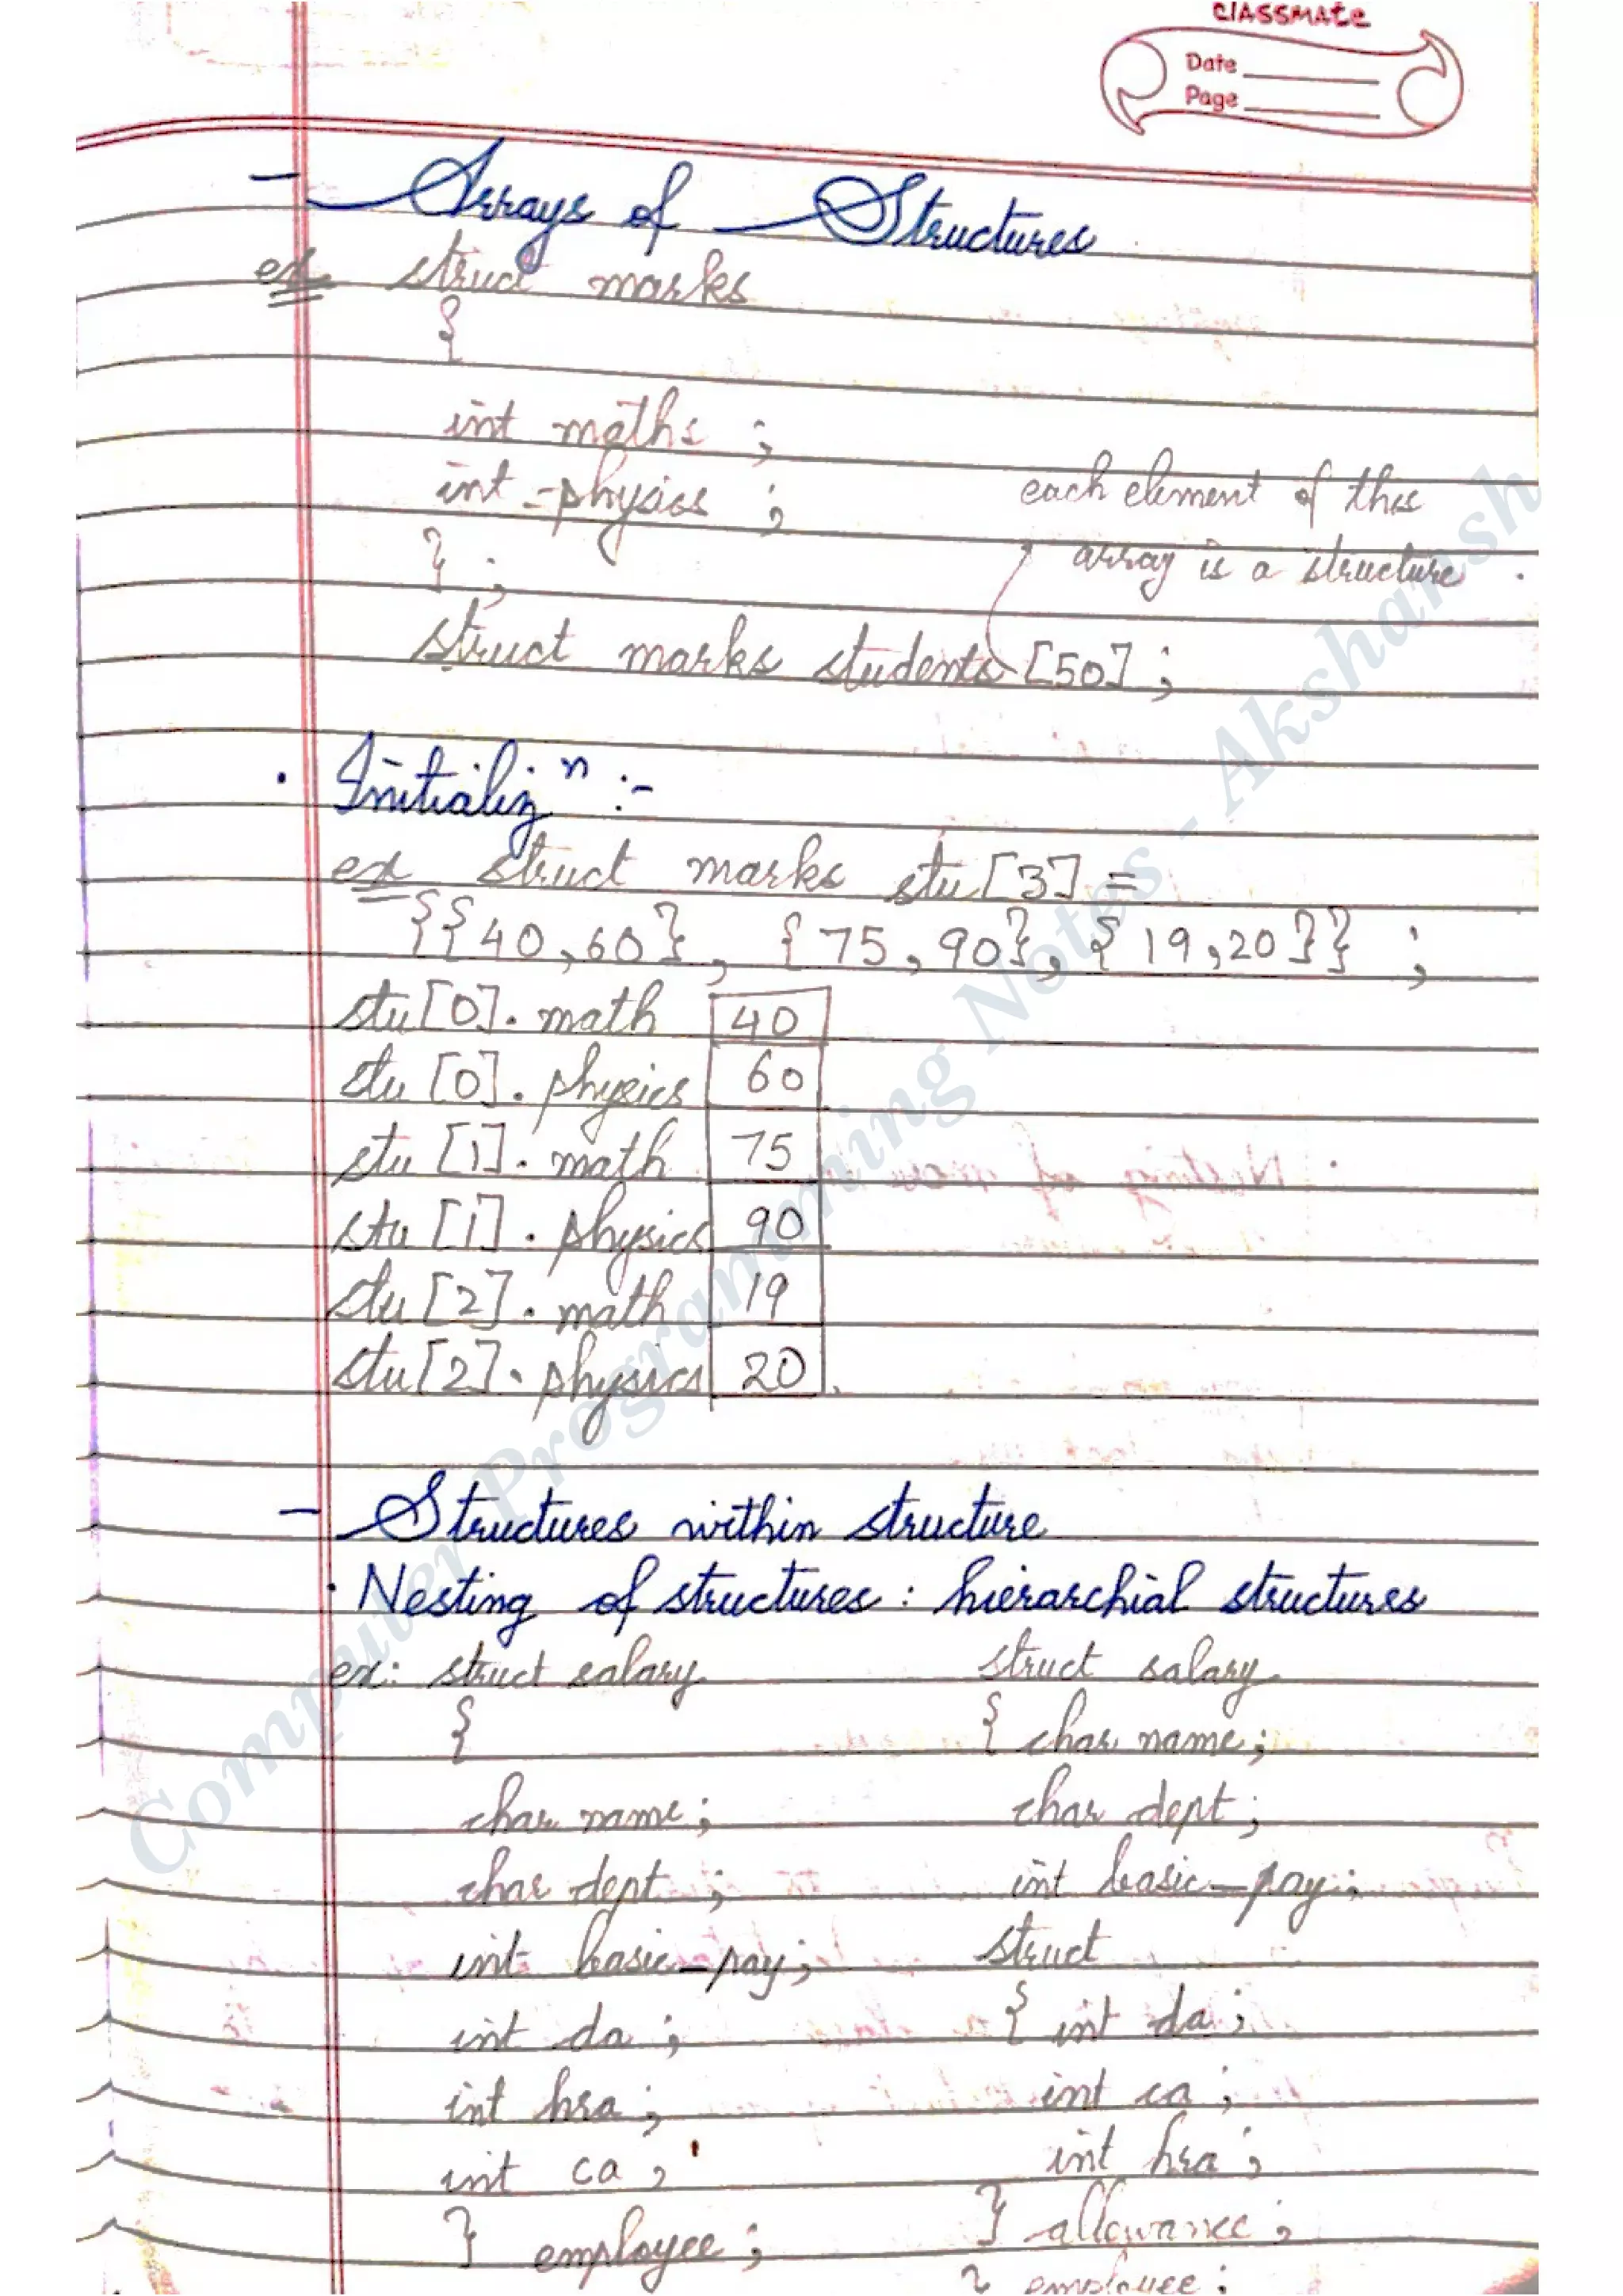 classmate
Date
Page
- Arrays of Structures
ex struct marks
{
int maths ;
int physics ;
each element of this
array is a structure .
} ;
struct marks students [50] ;
. Initializⁿ :-
ex struct marks stu [3] =
{{40,60}, {75, 90}, {19,20}} ;
stu[0]. math 40
stu [0]. physics 60
stu [1]. math 75
stu [1]. physics 90
stu [2]. math 19
stu[2]. physics 20
- Structures within structure
. Nesting of structures : hierarchial structures
ex: struct salary
{
char name ;
char dept ;
int basic_pay ;
int da ;
int hra ;
int ca ;
} employee ;
struct salary
{ char name ;
char dept ;
int basic_pay ;
struct
{ int da ;
int ca ;
int hra ;
} allowance ;
} employee ;
Computer Programming Notes - Akshansh